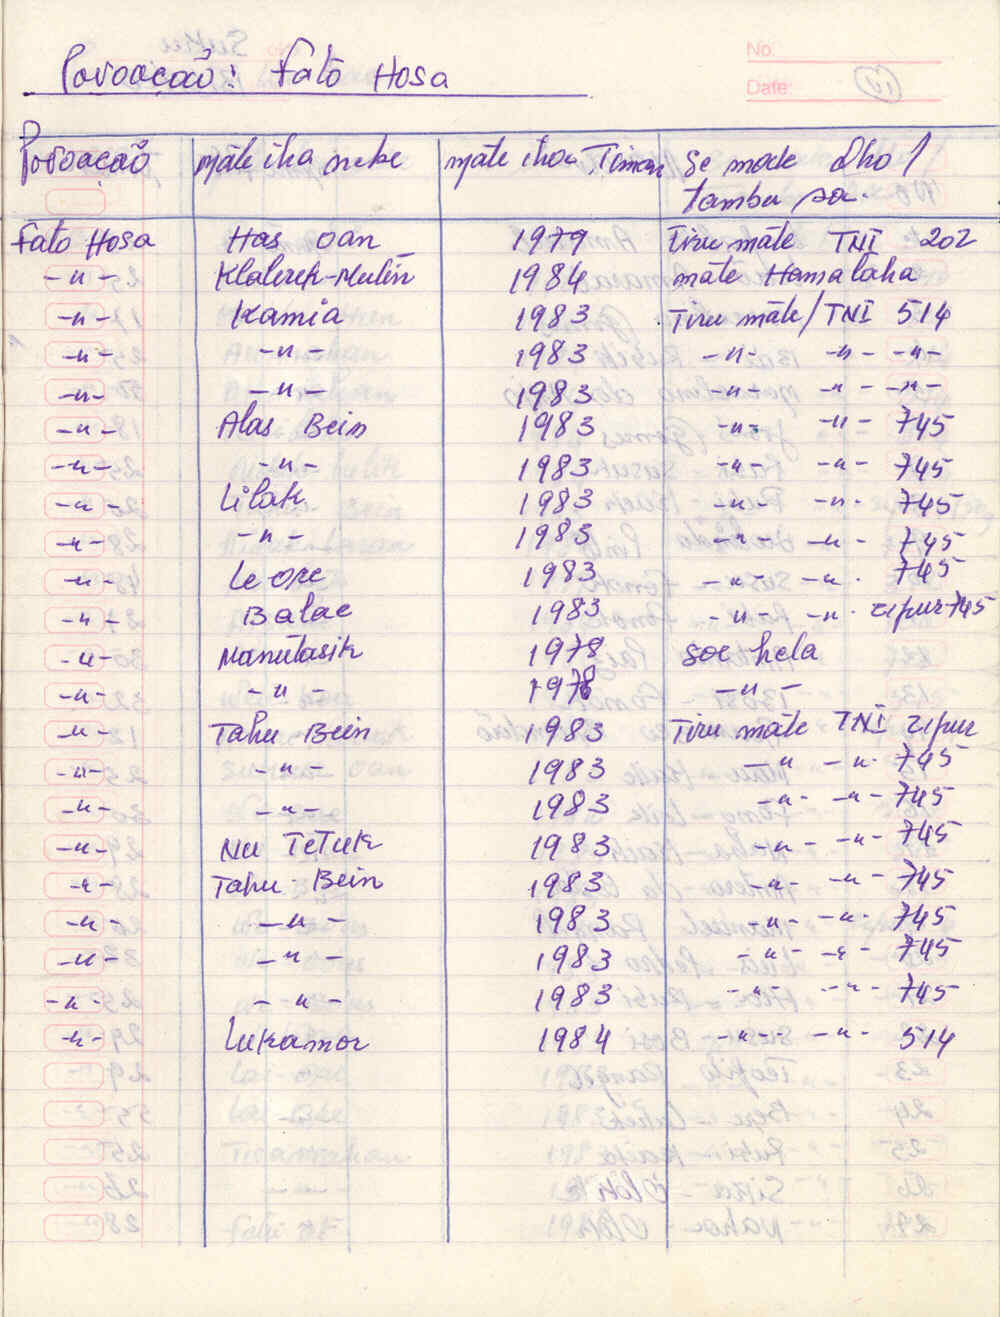 No:
Povoação: Fato Hosa
Date:
Povoação mate iha nebe mate ihoa Timan Se mode Dho /
tambu sa.
Fato Hosa Has oan 1979 Tiru mate TNI 202
-"- Klalerek-Mutin 1984 mate Hamalaha
-"- Kamia 1983 Tiru mate/TNI 514
-"- -"- 1983 -"- -"- -"-
-"- -"- 1983 -"- -"- -"-
-"- Alas Bein 1983 -"- -"- 745
-"- -"- 1983 -"- -"- 745
-"- Lilak 1983 -"- -"- 745
-"- -"- 1983 -"- -"- 745
-"- Le ore 1983 -"- -"- 745
-"- Balae 1983 -"- -"- zipur 745
-"- Manutasik 1978 soe hela
-"- -"- 1978 -"-
-"- Tahu Bein 1983 Tiru mate TNI zipur
-"- -"- 1983 -"- -"- 745
-"- -"- 1983 -"- -"- 745
-"- Nu Tetuk 1983 -"- -"- 745
-"- Tahu-Bein 1983 -"- -"- 745
-"- -"- 1983 -"- -"- 745
-"- -"- 1983 -"- -"- 745
-"- -"- 1983 -"- -"- 745
-"- Lukamor 1984 -"- -"- 514